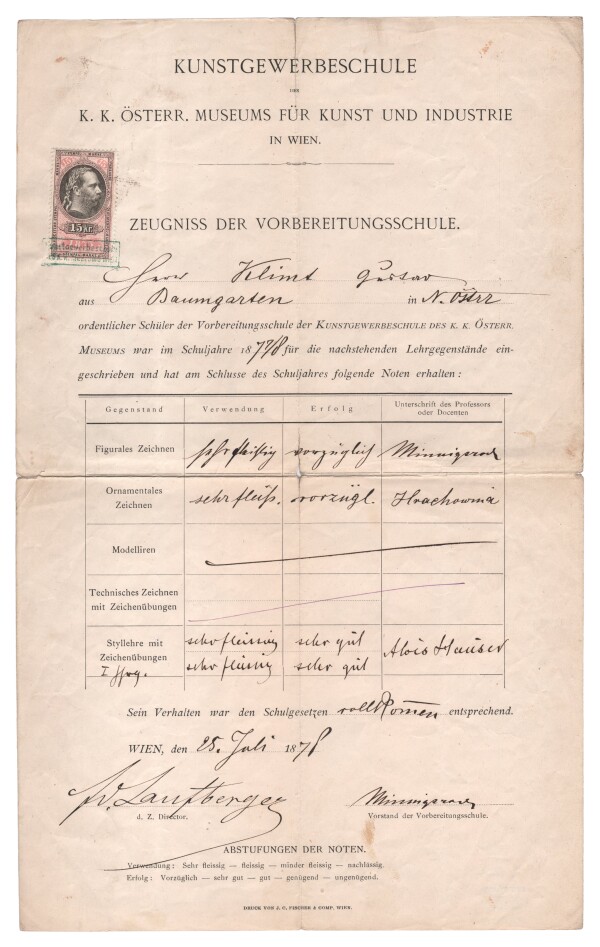 KUNSTGEWERBESCHULE
DES
K. K. ÖSTERR. MUSEUMS FÜR KUNST UND INDUSTRIE
IN WIEN.
15 Kr.
ZEUGNISS DER VORBEREITUNGSSCHULE.
Herr Klimt Gustav
aus Baumgarten in N. Östrr
ordentlicher Schüler der Vorbereitungsschule der KUNSTGEWERBESCHULE DES K. K. ÖSTERR.
MUSEUMS war im Schuljahre 1877/8 für die nachstehenden Lehrgegenstände ein-
geschrieben und hat am Schlusse des Schuljahres folgende Noten erhalten:
Gegenstand Verwendung Erfolg Unterschrift des Professors oder Docenten
Figurales Zeichnen sehr fleißig vorzüglich Minnigerode
Ornamentales Zeichnen sehr fleiß. vorzügl. Hrachowina
Modelliren
Technisches Zeichnen mit Zeichenübungen
Styllehre mit sehr fleissig sehr gut Alois Hauser
Zeichenübungen sehr fleissig sehr gut
I
Sein Verhalten war den Schulgesetzen vollkomen entsprechend.
WIEN, den 25. Juli 1878
Fd. Laufberger Minnigerode
d. Z. Director. Vorstand der Vorbereitungsschule.
ABSTUFUNGEN DER NOTEN.
Verwendung: Sehr fleissig — fleissig — minder fleissig — nachlässig.
Erfolg: Vorzüglich — sehr gut — gut — genügend — ungenügend.
DRUCK VON J. C. FISCHER & COMP. WIEN.